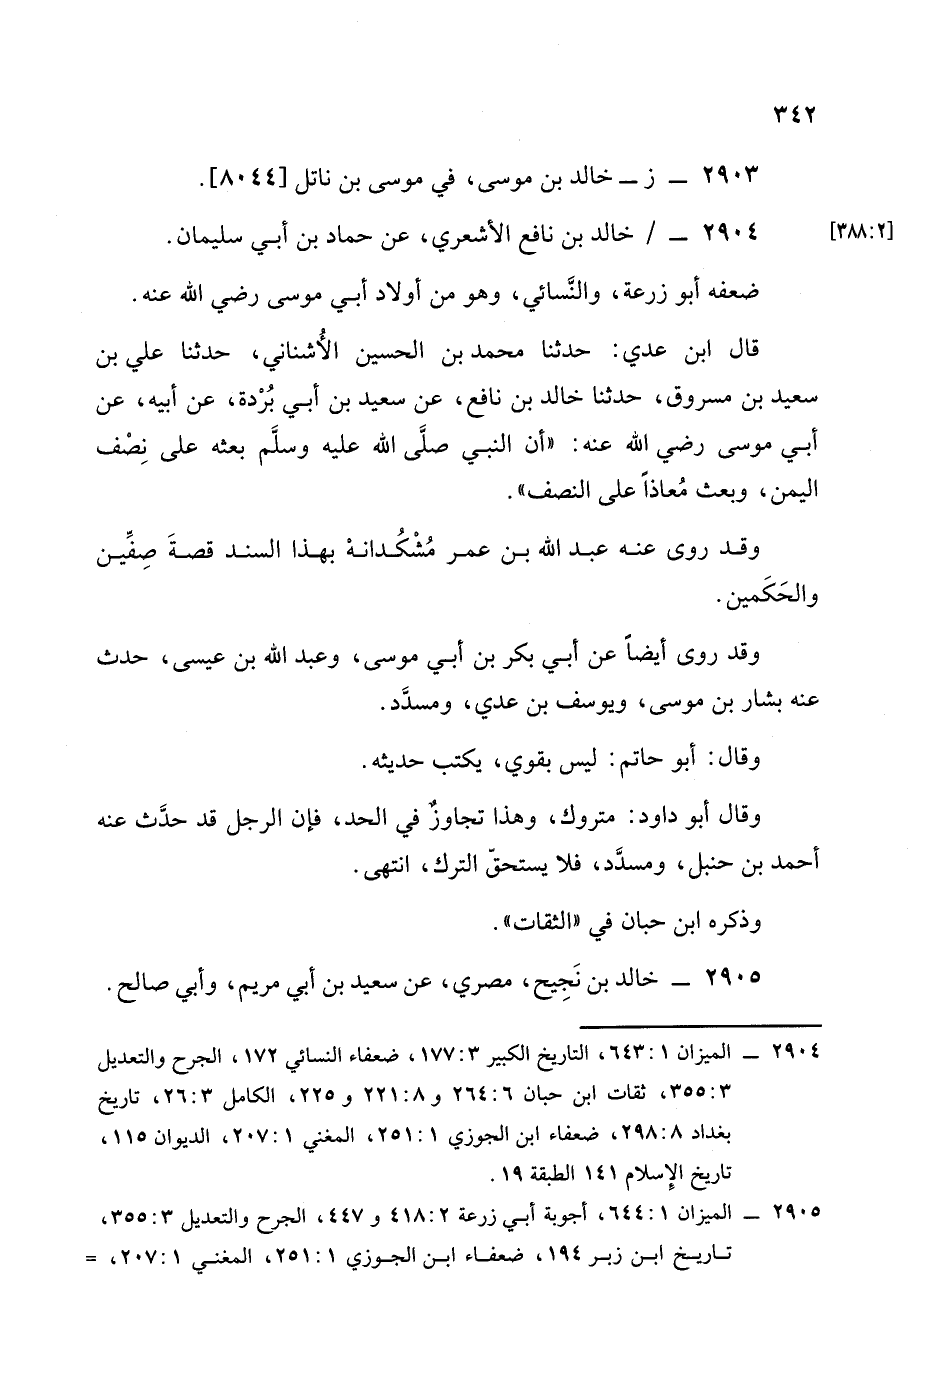 ٣٤٢
٢٩٠٣ ــ ز ــ خالد بن موسى، في موسى بن ناتل [٨٠٤٤].
[٣٨٨:٢]
٢٩٠٤ ــ / خالد بن نافع الأشعري، عن حماد بن أبي سليمان.
ضعفه أبو زرعة، والنَّسائي، وهو من أولاد أبي موسى رضي الله عنه.
قال ابن عدي: حدثنا محمد بن الحسين الأُشناني، حدثنا علي بن
سعيد بن مسروق، حدثنا خالد بن نافع، عن سعيد بن أبي بُرْدة، عن أبيه، عن
أبي موسى رضي الله عنه: «أن النبي صلَّى الله عليه وسلَّم بعثه على نِصْف
اليمن، وبعث مُعاذاً على النصف».
وقد روى عنه عبد الله بن عمر مُشْكُدانهْ بهذا السند قصةَ صِفِّين
والحَكَمين.
وقد روى أيضاً عن أبي بكر بن أبي موسى، وعبد الله بن عيسى، حدث
عنه بشار بن موسى، ويوسف بن عدي، ومسدَّد.
وقال: أبو حاتم: ليس بقوي، يكتب حديثه.
وقال أبو داود: متروك، وهذا تجاوزٌ في الحد، فإن الرجل قد حدَّث عنه
أحمد بن حنبل، ومسدَّد، فلا يستحقّ الترك، انتهى.
وذكره ابن حبان في «الثقات».
٢٩٠٥ ــ خالد بن نَجِيح، مصري، عن سعيد بن أبي مريم، وأبي صالح.
٢٩٠٤ ــ الميزان ١:٦٤٣، التاريخ الكبير ٣:١٧٧، ضعفاء النسائي ١٧٢، الجرح والتعديل
٣:٣٥٥، ثقات ابن حبان ٦:٢٦٤ و ٨:٢٢١ و ٢٢٥، الكامل ٣:٢٦، تاريخ
بغداد ٨:٢٩٨، ضعفاء ابن الجوزي ١:٢٥١، المغني ١:٢٠٧، الديوان ١١٥،
تاريخ الإسلام ١٤١ الطبقة ١٩.
٢٩٠٥ ــ الميزان ١:٦٤٤، أجوبة أبي زرعة ٢:٤١٨ و ٤٤٧، الجرح والتعديل ٣:٣٥٥،
تاريخ ابن زبر ١٩٤، ضعفاء ابن الجوزي ١:٢٥١، المغني ١:٢٠٧، =